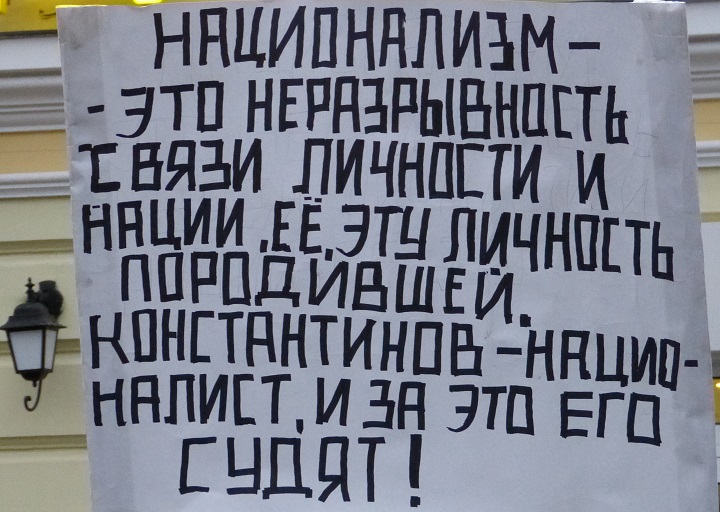 НАЦИОНАЛИЗМ –
- ЭТО НЕРАЗРЫВНОСТЬ
СВЯЗИ ЛИЧНОСТИ И
НАЦИИ, ЕЁ, ЭТУ ЛИЧНОСТЬ
ПОРОДИВШЕЙ.
КОНСТАНТИНОВ – НАЦИО-
НАЛИСТ, И ЗА ЭТО ЕГО
СУДЯТ!